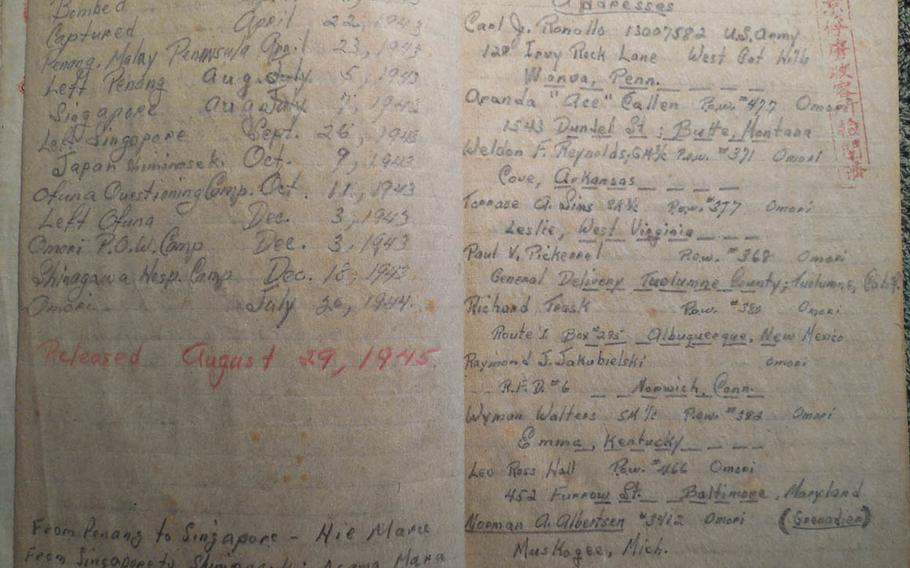 Bombed
Captured April 22, 1943
Penang, Malay Peninsula April 23, 1943
Left Penang Aug. July 5, 1943
Singapore Aug July 7, 1943
Left Singapore Sept. 26, 1943
Japan Shiminaseki Oct. 9, 1943
Ofuna Questioning Camp. Oct 11, 1943
Left Ofuna Dec. 3, 1943
Omori P.O.W. Camp Dec. 3, 1943
Shinagawa Hosp. Camp Dec. 18, 1943
Omori July 20, 1944.
Released August 29, 1945.
From Penang to Singapore - Hie Maru
From Singapore to Asama Maru
Addresses
Carl J. Ronallo 13007582 U.S. Army
Ivry Rock Lane West Gat Hills
Penn.
Aranda "Ace" Callen P.o.w. #477 Omori
1543 Dundel St; Butte, Montana
Weldon F. Reynolds; P.o.w. #371 Omori
Cove, Arkansas
A. Sins P.o.w. #377 Omori
Leslie, West Virginia
Paul V. Pickerrel P.o.w. #368 Omori
General Delivery Tuolumne County; Tuolumne, Calif.
Richard Trask P.o.w. #380 Omori
Route 1 Box #295 Albuquerque, New Mexico
Raymond J. Jakubielski Omori
R.F.D. #6 Norwich, Conn.
Wyman Walters SM 1/c P.o.w. #382 Omori
Emma, Kentucky
Leo Ross Hall P.o.w. #466 Omori
452 Furrow St. Baltimore, Maryland
Norman A. Albertsen #3412 Omori (Grenadier)
Muskogee, Mich.